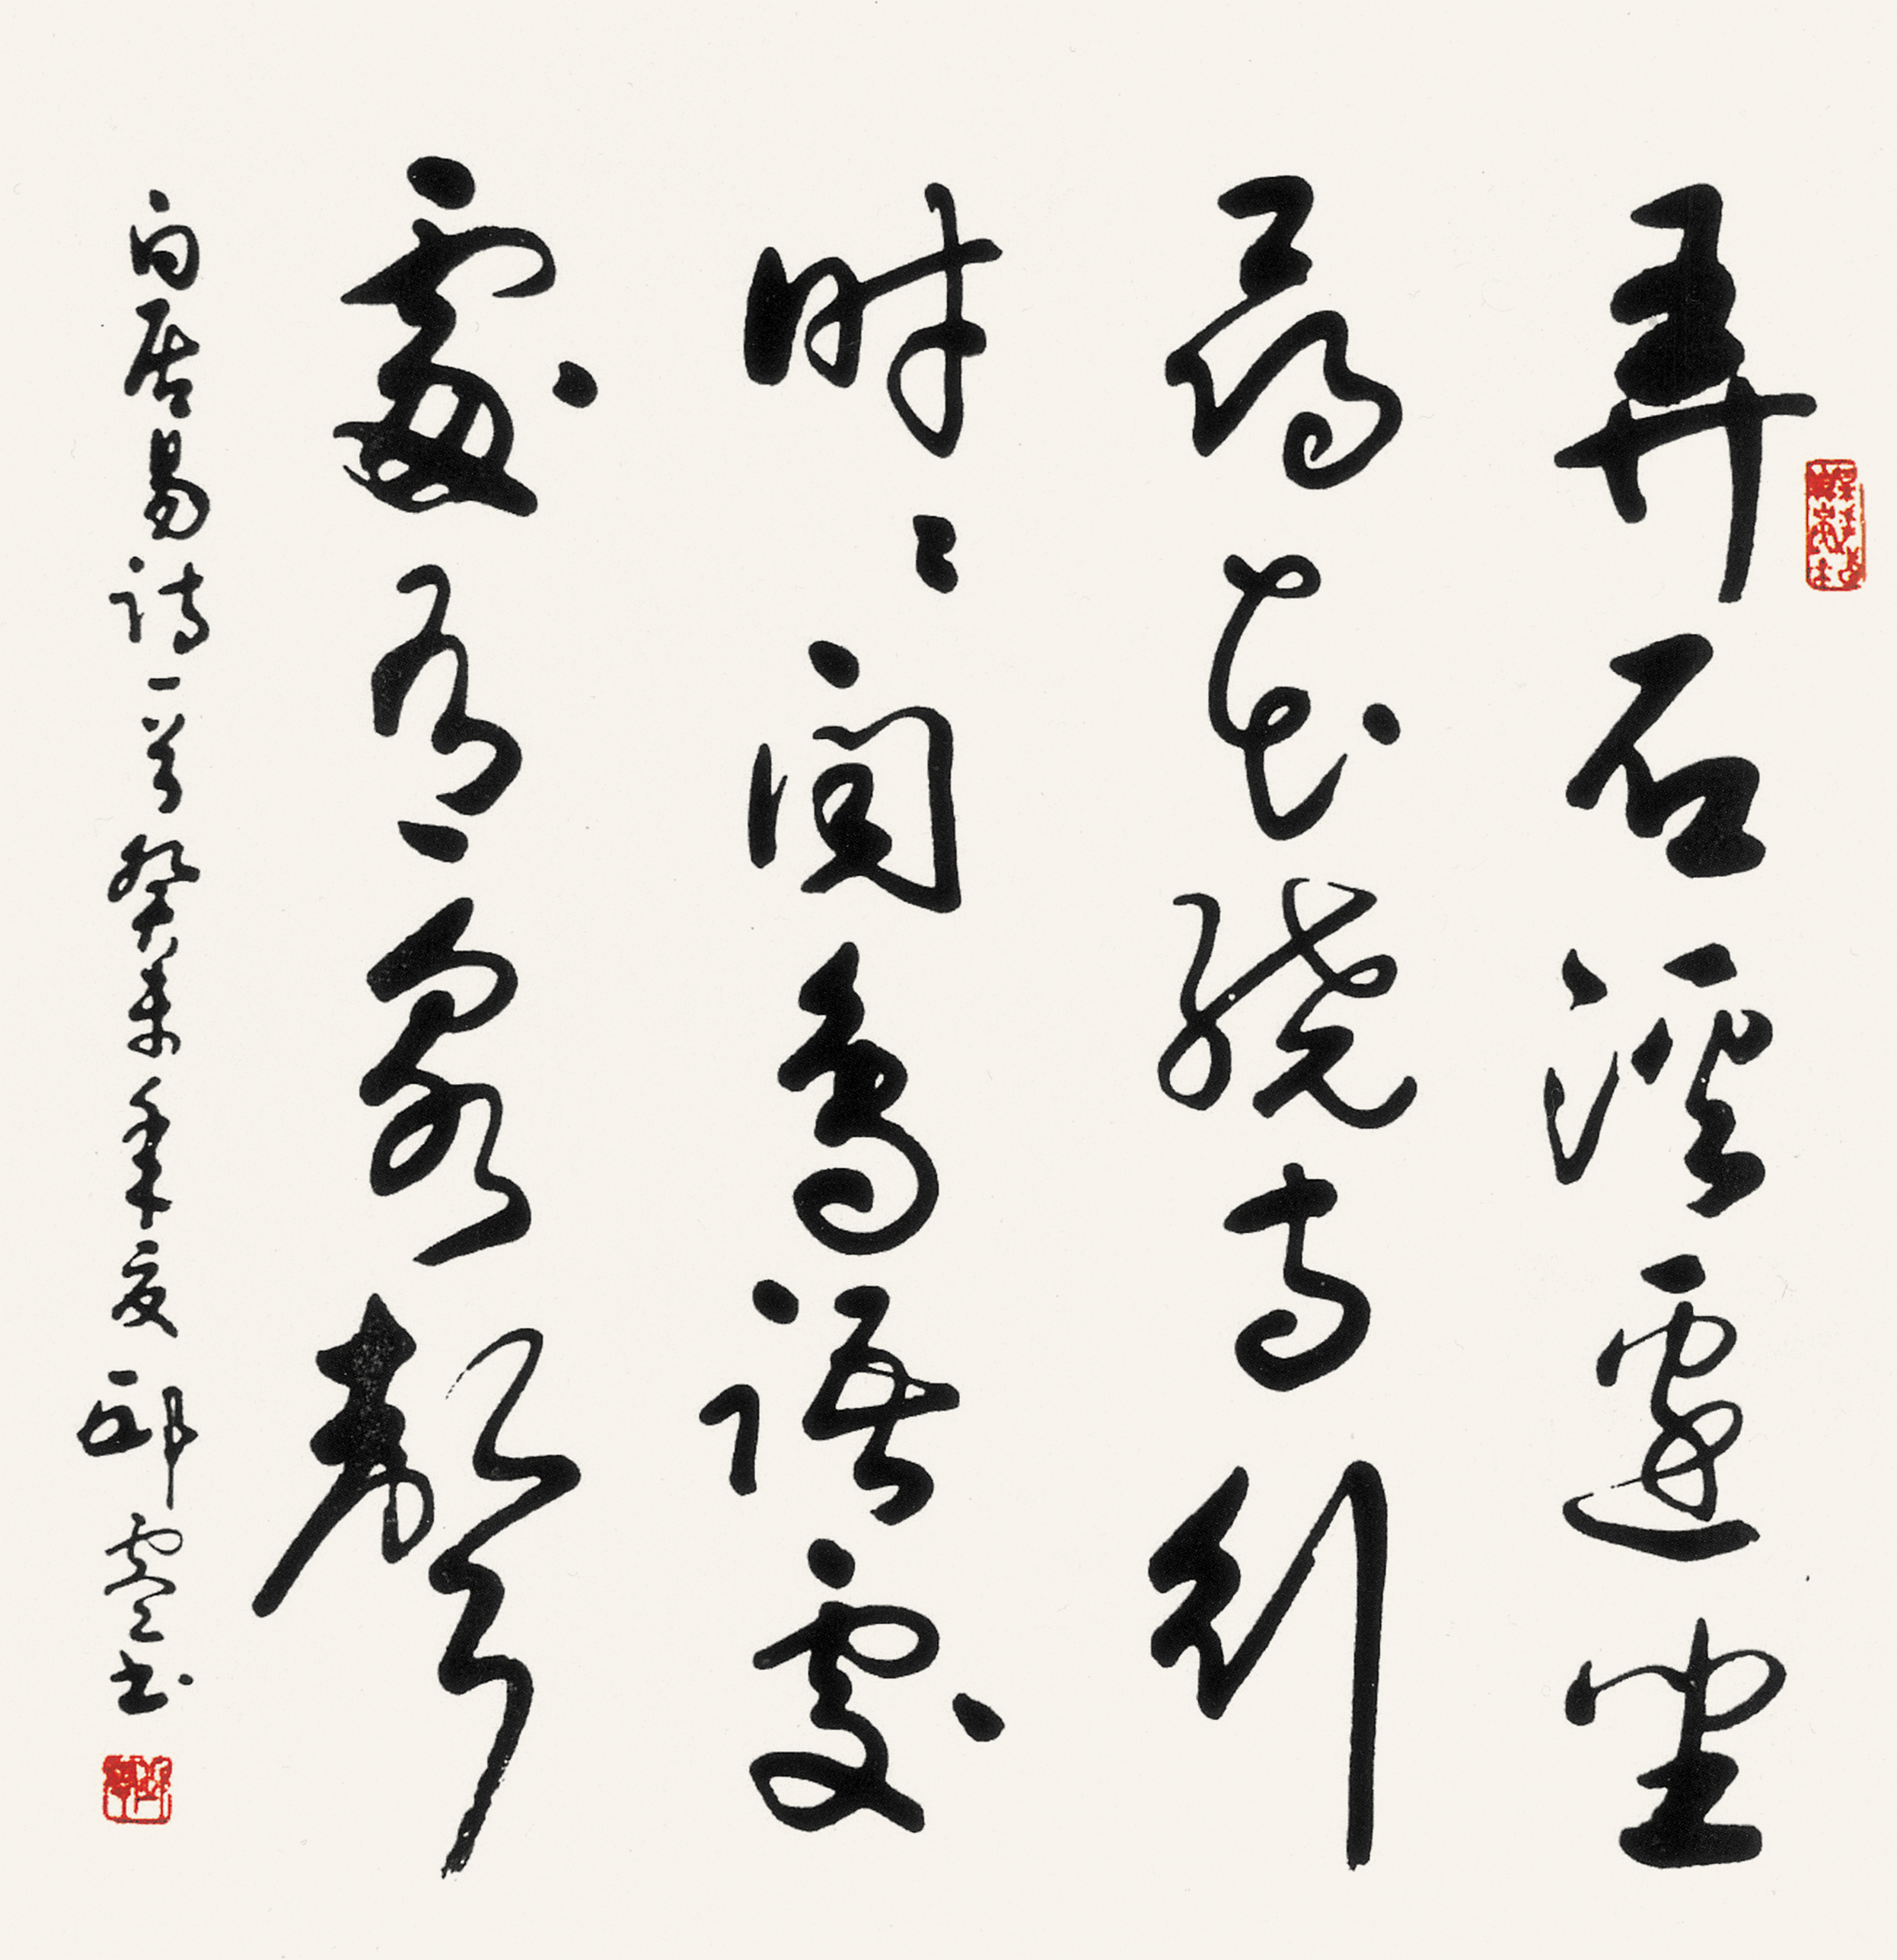 弄石溪邊坐
尋花繞寺行
時〻聞鳥語處
處有泉聲
白居易詩一首癸未年夏邱雲書